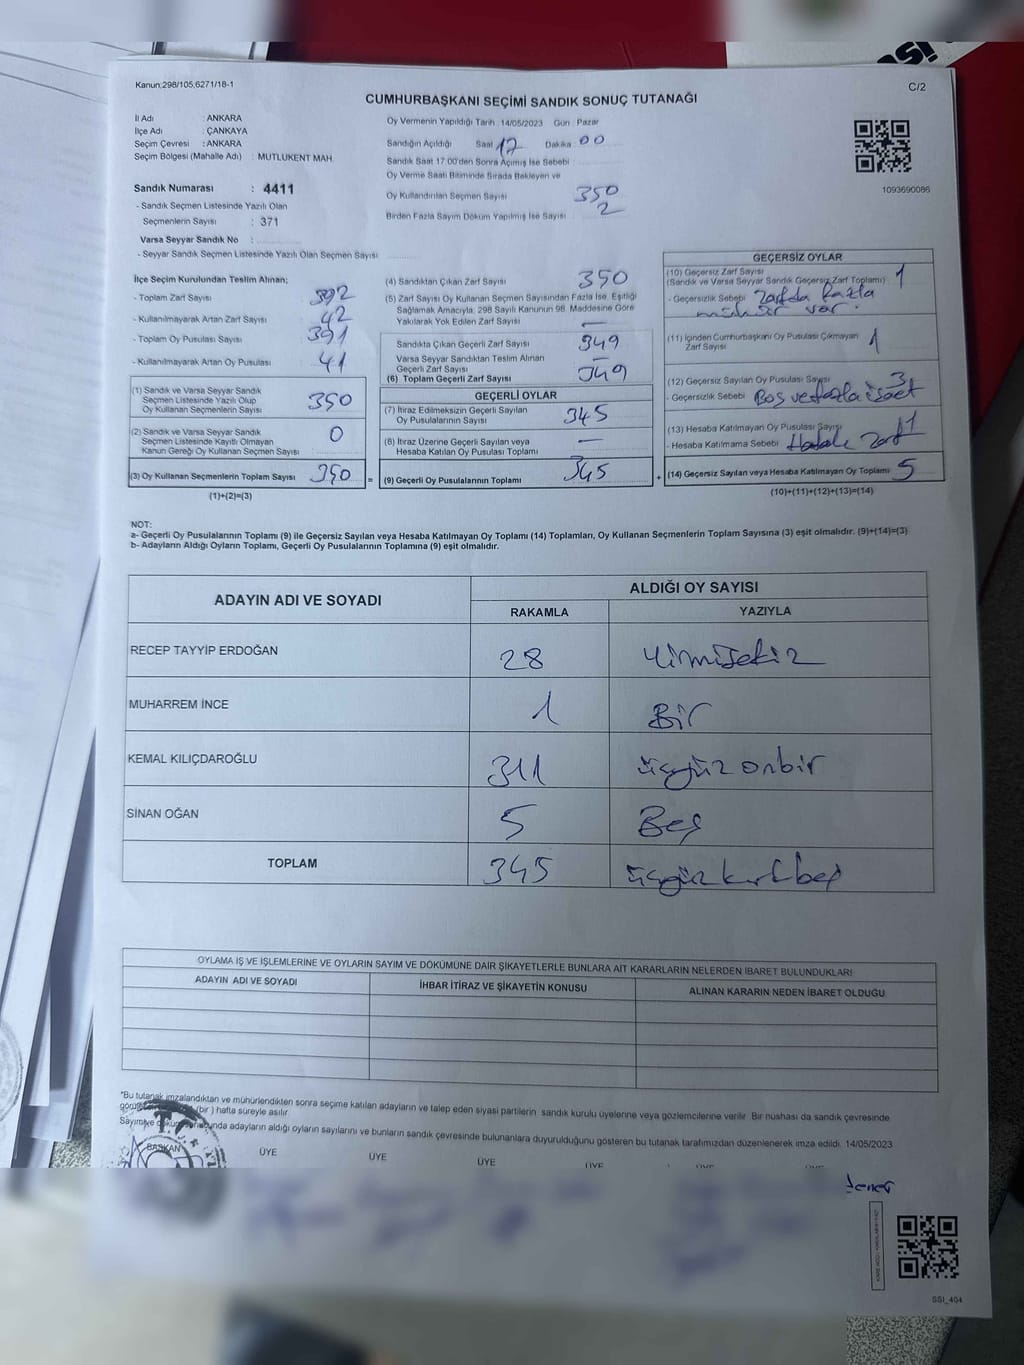 Kanun;298/105,6271/18-1
C/2
CUMHURBAŞKANI SEÇİMİ SANDIK SONUÇ TUTANAĞI
İl Adı : ANKARA
İlçe Adı : ÇANKAYA
Seçim Çevresi : ANKARA
Seçim Bölgesi (Mahalle Adı) : MUTLUKENT MAH.
Sandık Numarası : 4411
- Sandık Seçmen Listesinde Yazılı Olan
Seçmenlerin Sayısı : 371
Varsa Seyyar Sandık No :
- Seyyar Sandık Seçmen Listesinde Yazılı Olan Seçmen Sayısı
Oy Vermenin Yapıldığı Tarih : 14/05/2023 Gün : Pazar
Sandığın Açıldığı Saat : 17 Dakika : 00
Sandık Saat 17:00'den Sonra Açımış İse Sebebi :
Oy Verme Saati Bitiminde Sırada Bekleyen ve
Oy Kullandırılan Seçmen Sayısı 350
Birden Fazla Sayım Döküm Yapılmış İse Sayısı : 2
1093690086
İlçe Seçim Kurulundan Teslim Alınan;
- Toplam Zarf Sayısı 392
- Kullanılmayarak Artan Zarf Sayısı 42
- Toplam Oy Pusulası Sayısı 391
- Kullanılmayarak Artan Oy Pusulası 41
(1) Sandık ve Varsa Seyyar Sandık
Seçmen Listesinde Yazılı Olup
Oy Kullanan Seçmenlerin Sayısı 350
(2) Sandık ve Varsa Seyyar Sandık
Seçmen Listesinde Kayıtlı Olmayan
Kanun Gereği Oy Kullanan Seçmen Sayısı : 0
(3) Oy Kullanan Seçmenlerin Toplam Sayısı 350 =
(1)+(2)=(3)
(4) Sandıktan Çıkan Zarf Sayısı 350
(5) Zarf Sayısı Oy Kullanan Seçmen Sayısından Fazla İse, Eşitliği
Sağlamak Amacıyla, 298 Sayılı Kanunun 98. Maddesine Göre
Yakılarak Yok Edilen Zarf Sayısı —
Sandıkta Çıkan Geçerli Zarf Sayısı 349
Varsa Seyyar Sandıktan Teslim Alınan
Geçerli Zarf Sayısı —
(6) Toplam Geçerli Zarf Sayısı 349
GEÇERLİ OYLAR
(7) İtiraz Edilmeksizin Geçerli Sayılan
Oy Pusulası Sayısı 345
(8) İtiraz Üzerine Geçerli Sayılan veya
Hesaba Katılan Oy Pusulası Toplamı —
(9) Geçerli Oy Pusulalarının Toplamı 345 +
GEÇERSİZ OYLAR
(10) Geçersiz Zarf Sayısı
(Sandık ve Varsa Seyyar Sandık Geçersiz Zarf Toplamı) 1
- Geçersizlik Sebebi : Zarfda fazla
mühür var.
(11) İçinden Cumhurbaşkanı Oy Pusulası Çıkmayan
Zarf Sayısı 1
(12) Geçersiz Sayılan Oy Pusulası Sayısı 3
- Geçersizlik Sebebi : Boş ve fazla işaret
(13) Hesaba Katılmayan Oy Pusulası Sayısı 1
- Hesaba Katılmama Sebebi : Hatalı Zarf
(14) Geçersiz Sayılan veya Hesaba Katılmayan Oy Toplamı 5
(10)+(11)+(12)+(13)=(14)
NOT:
a- Geçerli Oy Pusulalarının Toplamı (9) ile Geçersiz Sayılan veya Hesaba Katılmayan Oy Toplamı (14) Toplamları, Oy Kullanan Seçmenlerin Toplam Sayısına (3) eşit olmalıdır. (9)+(14)=(3)
b- Adayların Aldığı Oyların Toplamı, Geçerli Oy Pusulalarının Toplamına (9) eşit olmalıdır.
ADAYIN ADI VE SOYADI ALDIĞI OY SAYISI
RAKAMLA YAZIYLA
RECEP TAYYİP ERDOĞAN 28 Yirmisekiz
MUHARREM İNCE 1 Bir
KEMAL KILIÇDAROĞLU 311 üçyüz onbir
SİNAN OĞAN 5 Beş
TOPLAM 345 üçyüz kırkbeş
OYLAMA İŞ VE İŞLEMLERİNE VE OYLARIN SAYIM VE DÖKÜMÜNE DAİR ŞİKAYETLERLE BUNLARA AİT KARARLARIN NELERDEN İBARET BULUNDUKLARI
ADAYIN ADI VE SOYADI İHBAR İTİRAZ VE ŞİKAYETİN KONUSU ALINAN KARARIN NEDEN İBARET OLDUĞU
*Bu tutanak imzalandıktan ve mühürlendikten sonra seçime katılan adayların ve talep eden siyasi partilerin sandık kurulu üyelerine veya gözlemcilerine verilir. Bir nüshası da sandık çevresinde
(bir) hafta süreyle asılır.
Sayım ve döküm adayların aldığı oyların sayılarını ve bunların sandık çevresinde bulunanlara duyurulduğunu gösteren bu tutanak tarafımızdan düzenlenerek imza edildi. 14/05/2023
BAŞKAN ÜYE ÜYE ÜYE ÜYE ÜYE ÜYE
SSİ_404